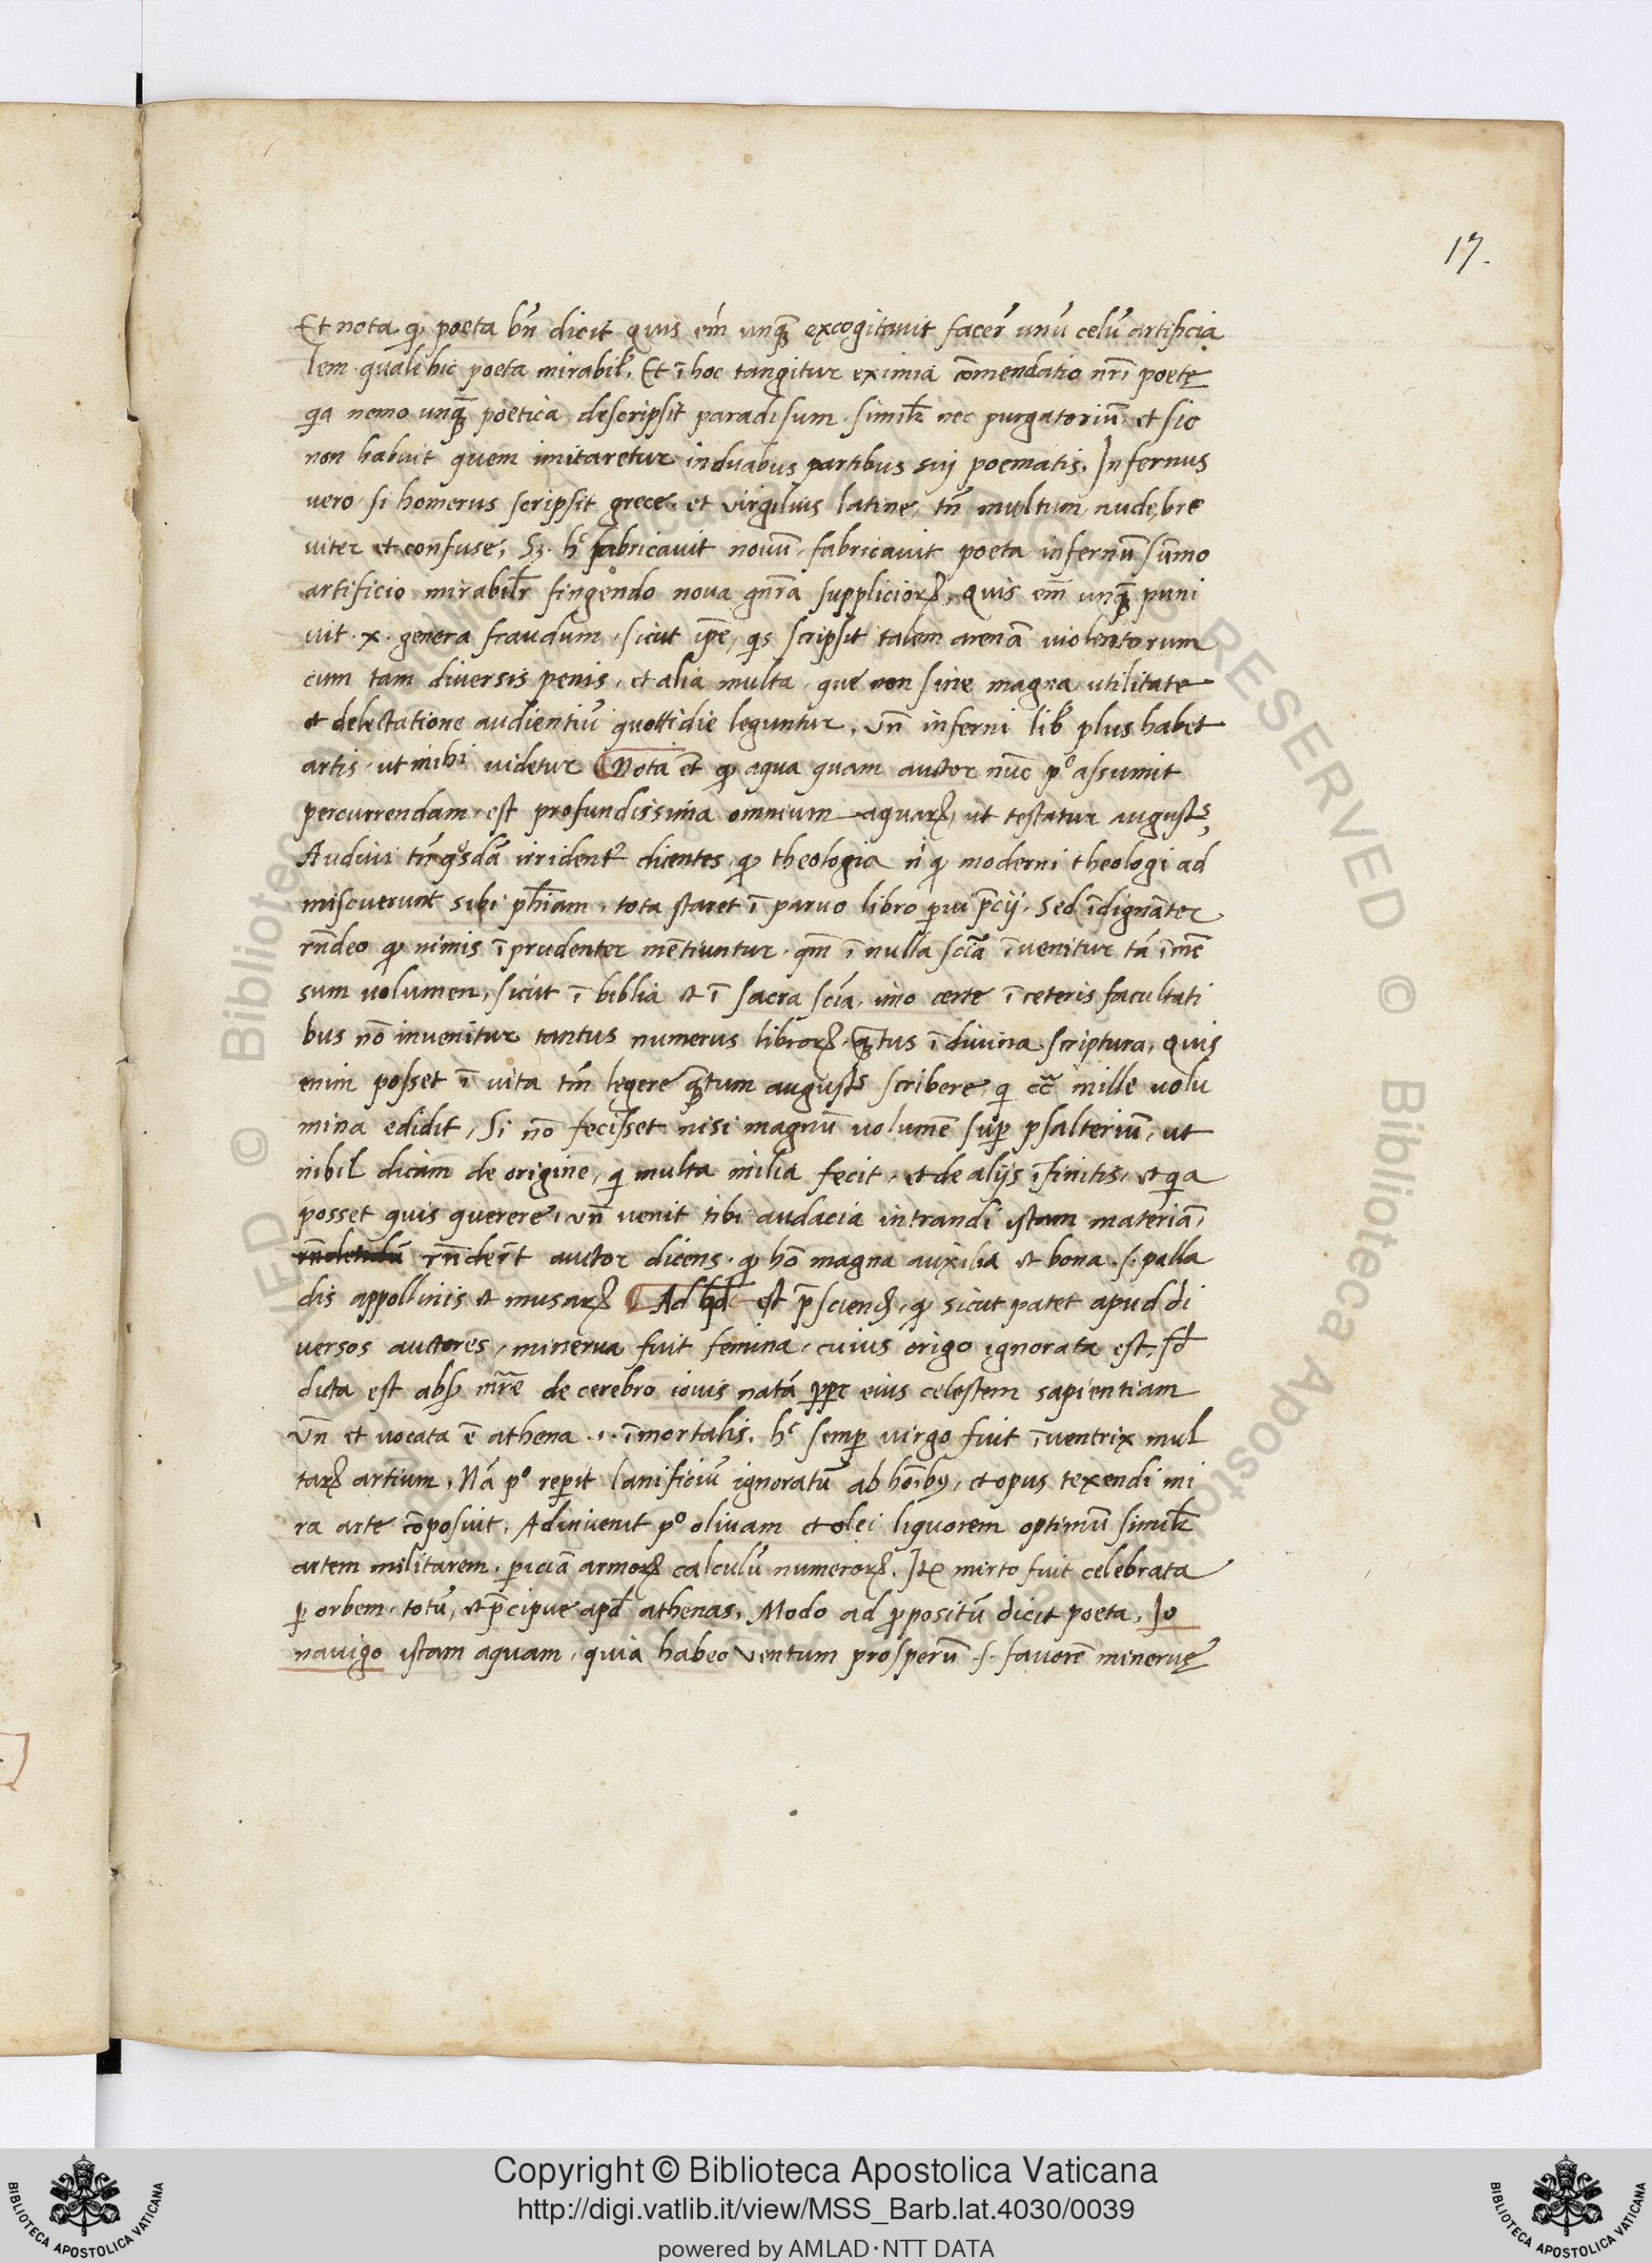 17.
Et nota ꝙ poeta bn̄ dicit quis em̄ unꝗ̄ excogitauit facer̄ unū celū artificia
lem quale hic poeta mirabil. Et ī hoc tangitur eximia cōmendatio nr̄i poetę
qa nemo unꝗ̄ poetica descripsit paradisum. similr nec purgatoriū, et sic
non habuit quem imitaretur induabus partibus suj poematis. Infernus
vero si homerus scripsit grece. et virgilius latine, tn̄ multum nude, bre
uiter et confuse, Sꝫ. hc fabricauit nouū fabricauit poeta infernū sūmo
artificio mirabilr fingendo noua gnr̄a supplicioꝝ, Quis em̄ unꝗ̄ puni
uit .x. genera fraudum, sicut ip̄e, qs scripsit talem arenā violentorum
cum tam diuersis penis, et alia multa, que non sine magna utilitate
et delectatione audientiū quottidie leguntur, vn̄ inferni lib plus habet
artis, ut mihi uidetur Nota et̄ ꝙ aqua quam auctor nūc pº assumit
percurrendam, est profundissima omnium aquaꝝ, ut testatur augusts,
Audiui tn̄ qsdā irridentr dicentes, ꝙ theologia n ꝙ moderni theologi ad
miscuerunt sibi ph̄iam, tota staret ī paruo libro pui p̄cij. Sed īdignāter
rn̄deo ꝙ nimis īprudenter mētiuntur. qm̄ ī nulla scīa īuenitur tā īmē
sum uolumen, sicut ī biblia et ī sacra scīa, imo certe ī ceteris facultati
bus nō inuenitur tantus numerus libroꝝ ꝗ̄tus ī diuina scriptura, Quis
enim posset ī vita tm̄ legere ꝗ̄tum augusts scribere, q cc̄ mille uolu
mina edidit, Si nō fecisset nisi magnū uolumē suꝑ psalteriū, ut
nihil dicam de origine, q multa milia fecit, et de alijs īfinitis, et qa
posset quis querere, vn̄ venit tibi audacia intrandi istam materiā,
rn̄dendū rn̄det auctor dicens. ꝙ hō magna auxilia et bona .s. palla
dis appollinis et musaꝝ Ad qd est p̄sciend, ꝙ sicut patet apud di
versos auctores, minerua fuit femina, cuius origo ignorata est, sd
dicta est absꝗ mr̄e de cerebro iouis natā ꝓpt eius celestem sapientiam
vn̄ et uocata ē athena .i. īmortalis. hc semꝑ virgo fuit īuentrix mul
taꝝ artium, Nā pº reꝑit lanificiū ignoratū ab hōibꝰ, et opus texendi mi
ra arte cōposuit. Adinuenit pº oliuam et olei liquorem optimū similr
artem militarem. ꝑiciā armoꝝ calculū numeroꝝ. Iō merito fuit celebrata
ꝑ orbem totū, et p̄cipue apd athenas, Modo ad ꝓpositū dicit poeta, Io
nauigo istam aquam, quia habeo ventum prosperū .s. fauorē mineruę
Copyright © Biblioteca Apostolica Vaticana
http://digi.vatlib.it/view/MSS_Barb.lat.4030/0039
powered by AMLAD·NTT DATA
BIBLIOTECA APOSTOLICA VATICANA
BIBLIOTECA APOSTOLICA VATICANA